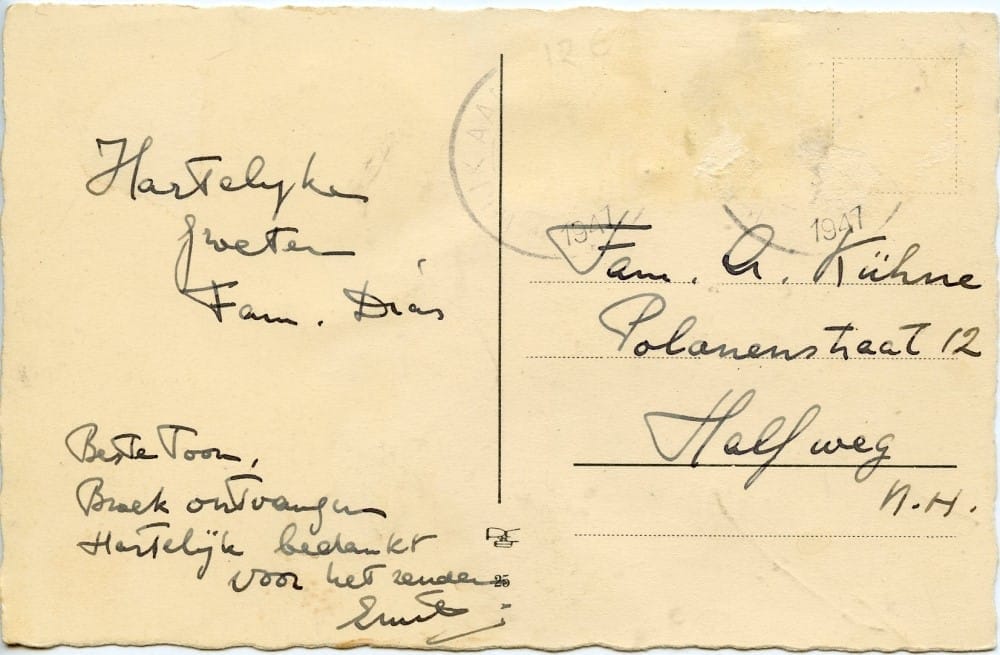 Hartelyke
Groeten
Fam. Dias
Beste Toon,
Broek ontvangen
Hartelijk bedankt
voor het zenden
12 E
1947
1947
Fam. A. Kühne
Polanenstraat 12
Halfweg
N.H.
25